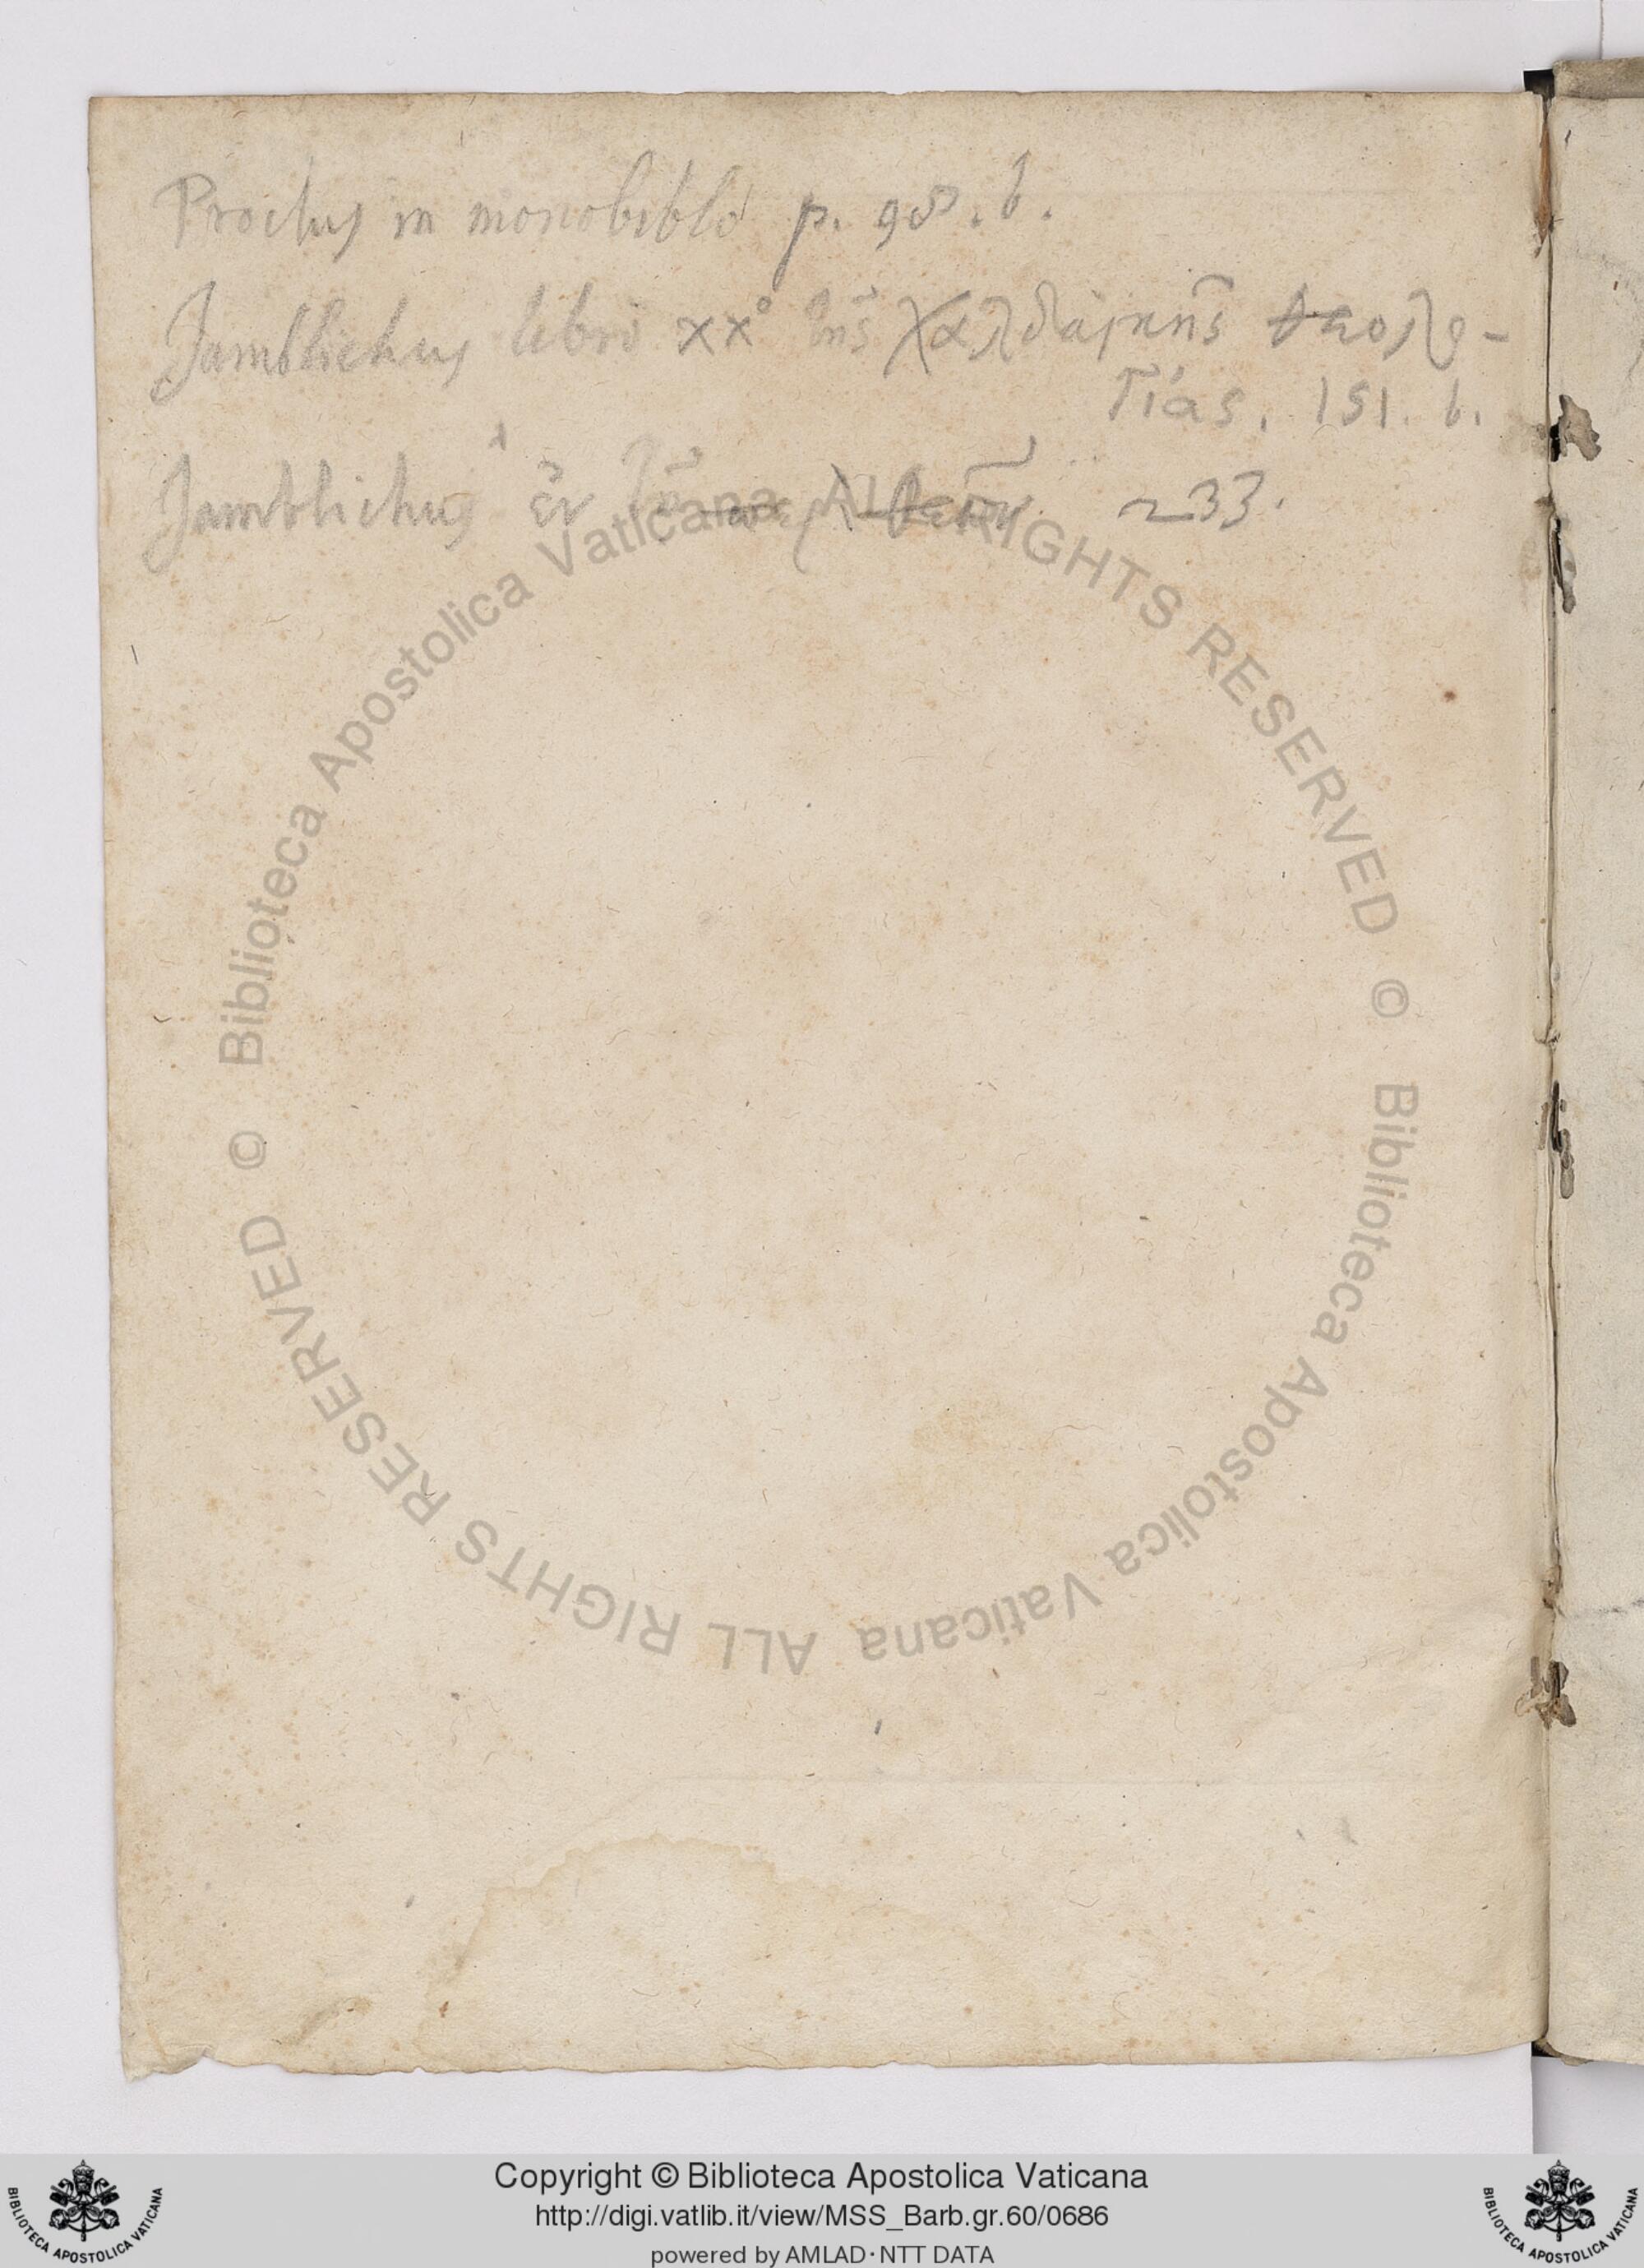 Proclus in monobiblo p. 98. b.
Jamblichus libro xx° τῆς χαλδαϊκῆς θεολο-
γίας. 151. b.
Jamblichus ἐν τῷ περὶ θεῶν 233.
© Biblioteca Apostolica Vaticana ALL RIGHTS RESERVED
© Biblioteca Apostolica Vaticana ALL RIGHTS RESERVED
BIBLIOTECA APOSTOLICA VATICANA
Copyright © Biblioteca Apostolica Vaticana
http://digi.vatlib.it/view/MSS_Barb.gr.60/0686
powered by AMLAD·NTT DATA
BIBLIOTECA APOSTOLICA VATICANA